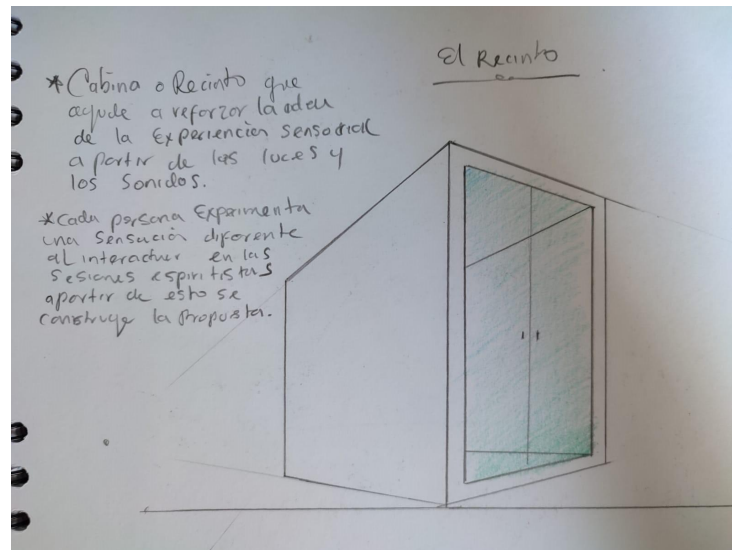 El Recinto
*Cabina o Recinto que
ayude a reforzor la idea
de la Experiencia Sensorial
a partir de las luces y
los Sonidos.
*Cada persona Experimenta
una Sensación diferente
al interactuar en las
Sesiones espiritistas
apartir de esto se
construye la Propuesta.